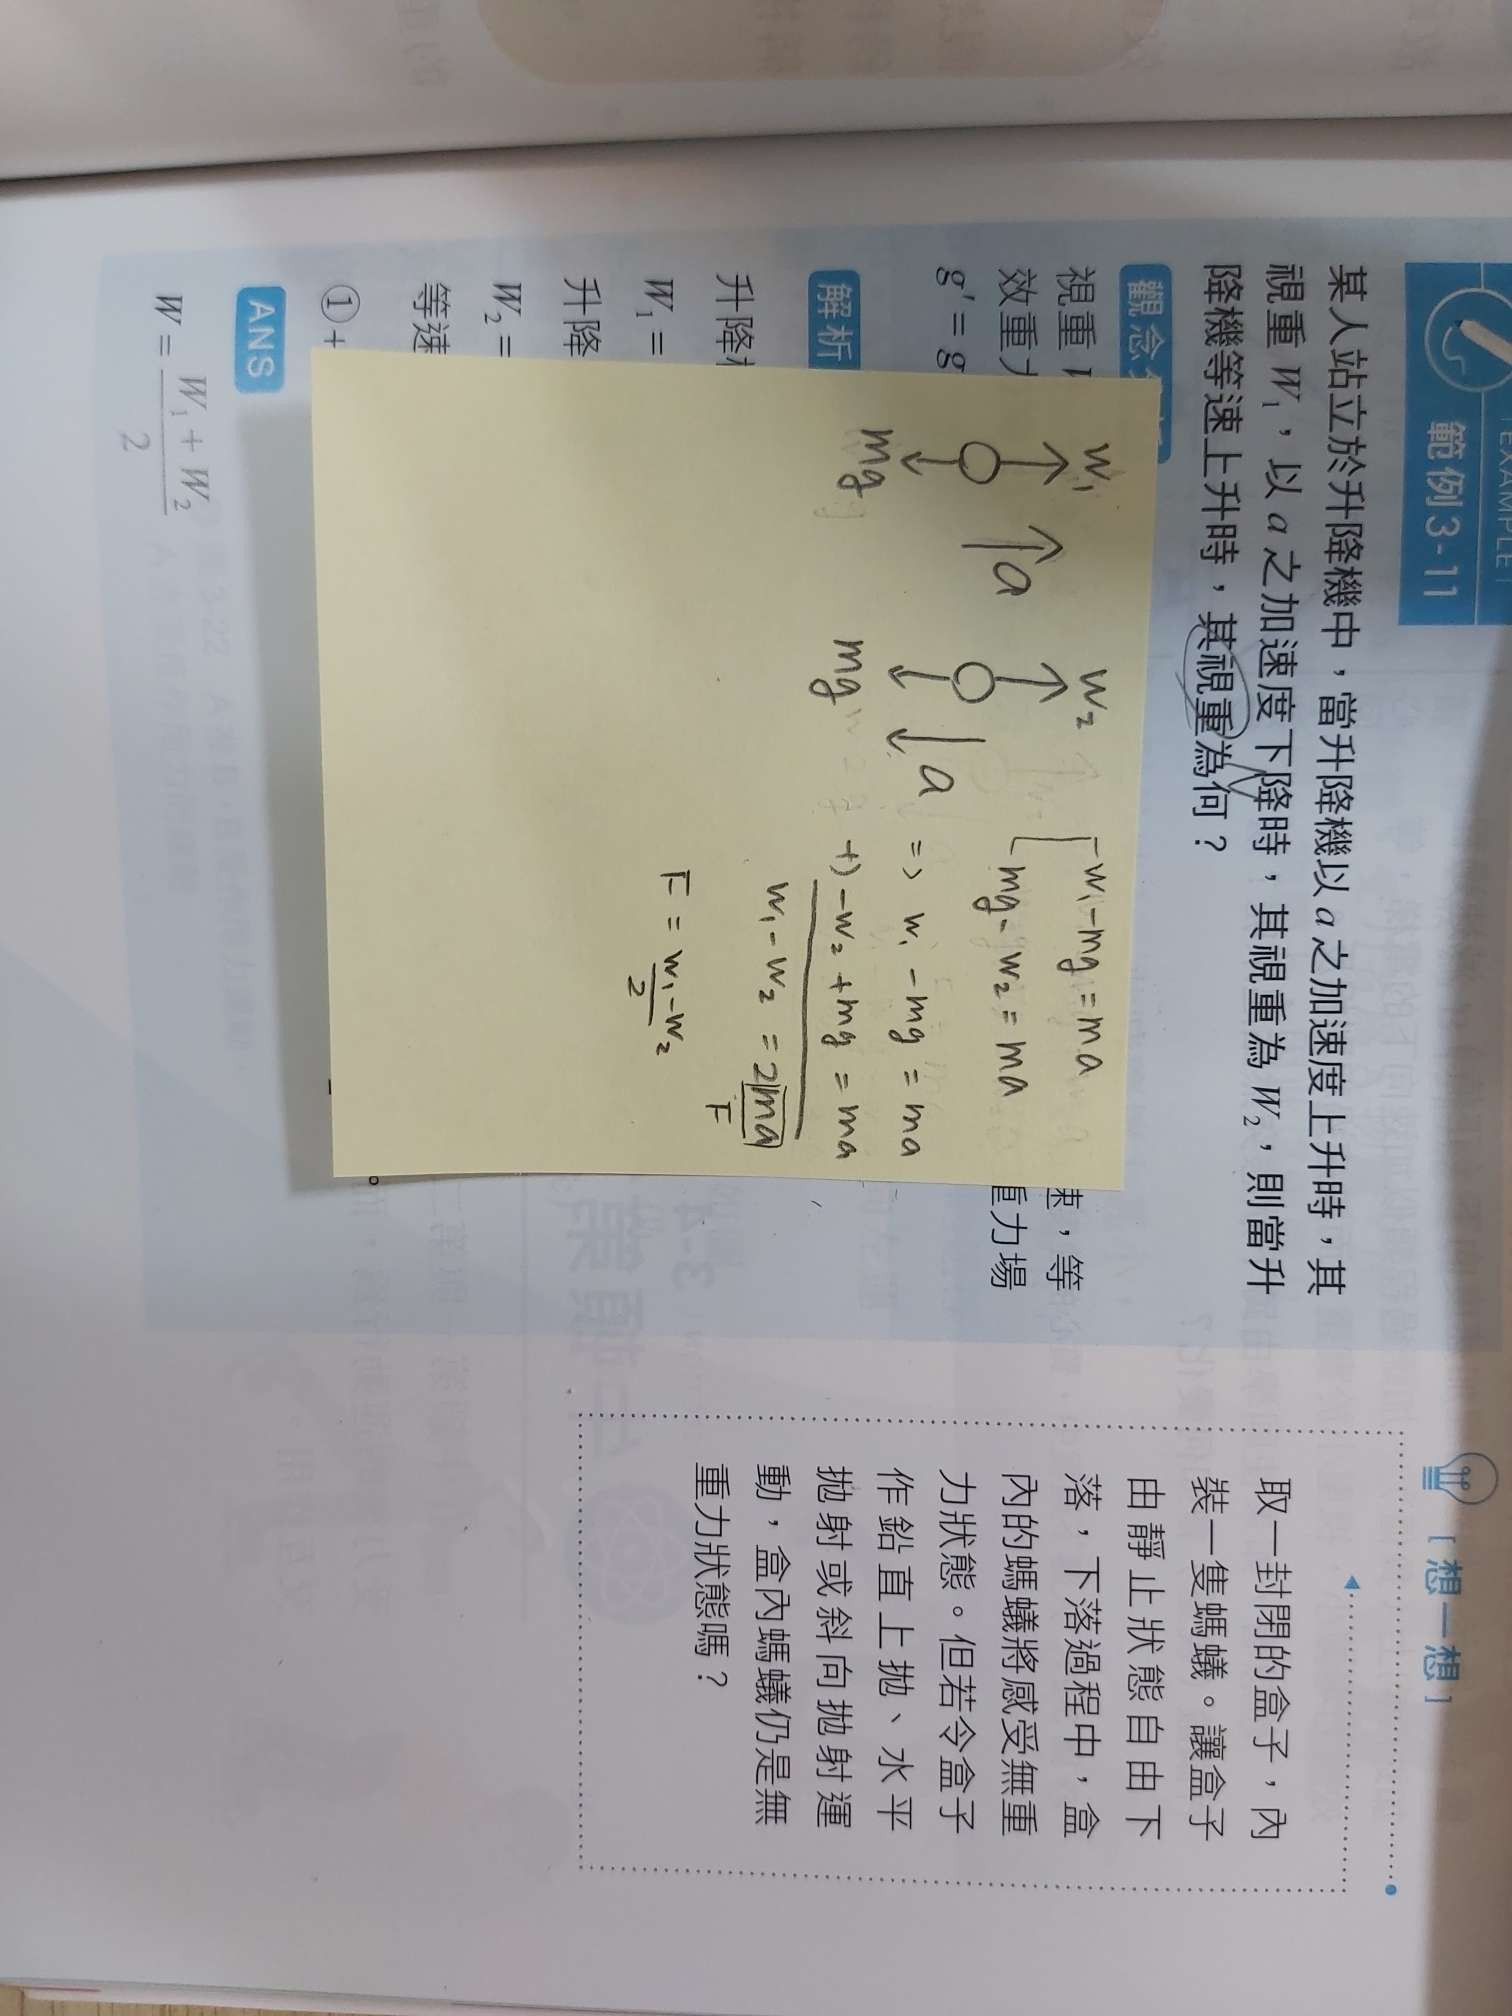 EXAMPLE
範例3-11
某人站立於升降機中，當升降機以a之加速度上升時，其
視重W₁，以a之加速度下降時，其視重為W₂，則當升
降機等速上升時，其視重為何？
觀念
視重
速，等
效重力
重力場
g' = g
解析
升降
W₁ =
升降
W₂ =
等速
①+
ANS
W = (W₁ + W₂) / 2
w₁
mg
a
w₂
mg
a
w₁ - mg = ma
mg - w₂ = ma
=> w₁ - mg = ma
+) -w₂ + mg = ma
w₁ - w₂ = 2ma
F
F = (w₁ - w₂) / 2
[想一想]
取一封閉的盒子，內
裝一隻螞蟻。讓盒子
由靜止狀態自由下
落，下落過程中，盒
內的螞蟻將感受無重
力狀態。但若令盒子
作鉛直上拋、水平
拋射或斜向拋射運
動，盒內螞蟻仍是無
重力狀態嗎？